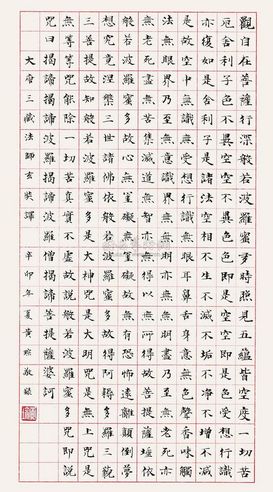 觀自在菩薩行深般若波羅蜜多時照見五蘊皆空度一切苦
厄舍利子色不異空空不異色色即是空空即是色受想行識
亦復如是舍利子是諸法空相不生不滅不垢不淨不增不減
是故空中無色無受想行識無眼耳鼻舌身意無色聲香味觸
法無眼界乃至無意識界無無明亦無無明盡乃至無老死亦
無老死盡無苦集滅道無智亦無得以無所得故菩提薩埵依
般若波羅蜜多故心無罣礙無罣礙故無有恐怖遠離顛倒夢
想究竟涅槃三世諸佛依般若波羅蜜多故得阿耨多羅三藐
三菩提故知般若波羅蜜多是大神咒是大明咒是無上咒是
無等等咒能除一切苦真實不虛故說般若波羅蜜多咒即說
咒曰揭諦揭諦波羅揭諦波羅僧揭諦菩提薩婆訶
大唐三藏法師玄奘譯 辛卯年夏黃敬錄